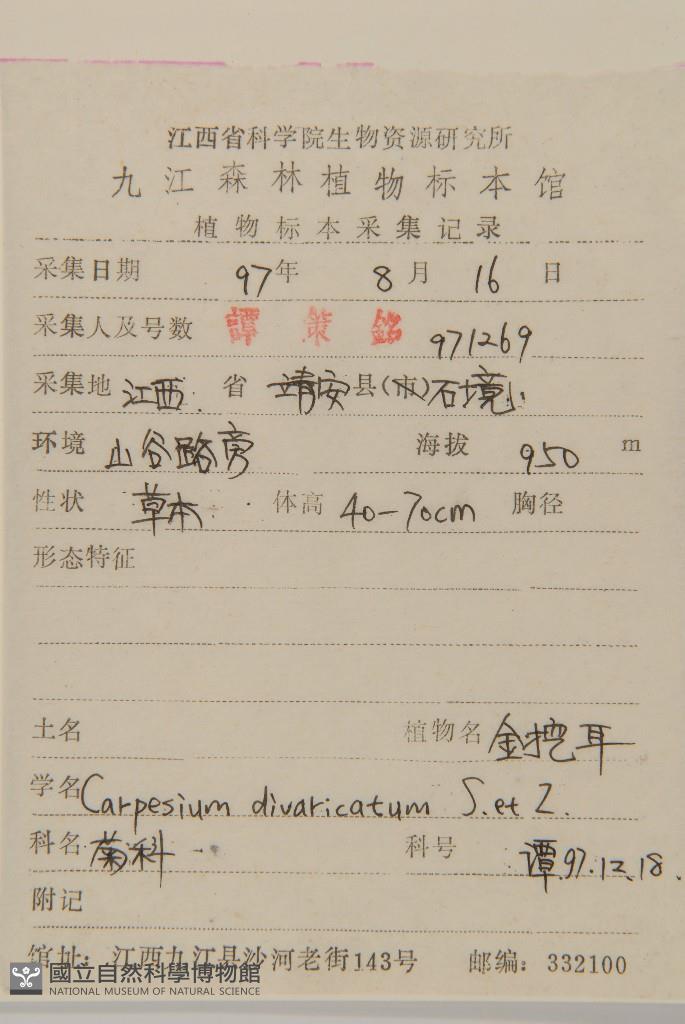 江西省科学院生物资源研究所
九江森林植物标本馆
植物标本采集记录
采集日期 97年 8月 16日
采集人及号数 譚策銘 971269
采集地 江西省 靖安县(市)石境
环境 山谷路旁 海拔 950 m
性状 草本 体高 40-70cm 胸径
形态特征
土名 植物名 金挖耳
学名 Carpesium divaricatum S. et Z.
科名 菊科 科号 谭.97.12.18.
附记
馆址：江西九江县沙河老街143号 邮编：332100
國立自然科學博物館
NATIONAL MUSEUM OF NATURAL SCIENCE